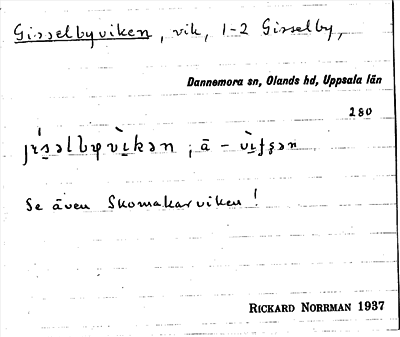 Gisselbyviken, vik, 1-2 Gisselby,
Dannemora sn, Olands hd, Uppsala län
280
Se även Skomakarviken!
RICKARD NORRMAN 1937